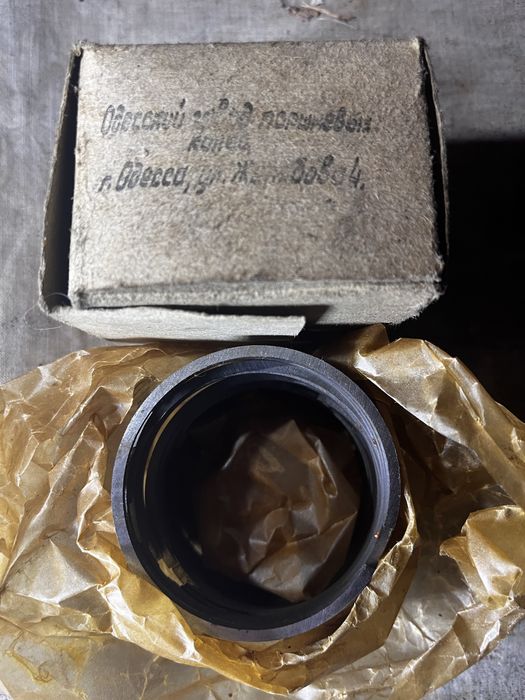 Одесский завод поршневых
колец
г. Одесса, ул. Желябова 4.